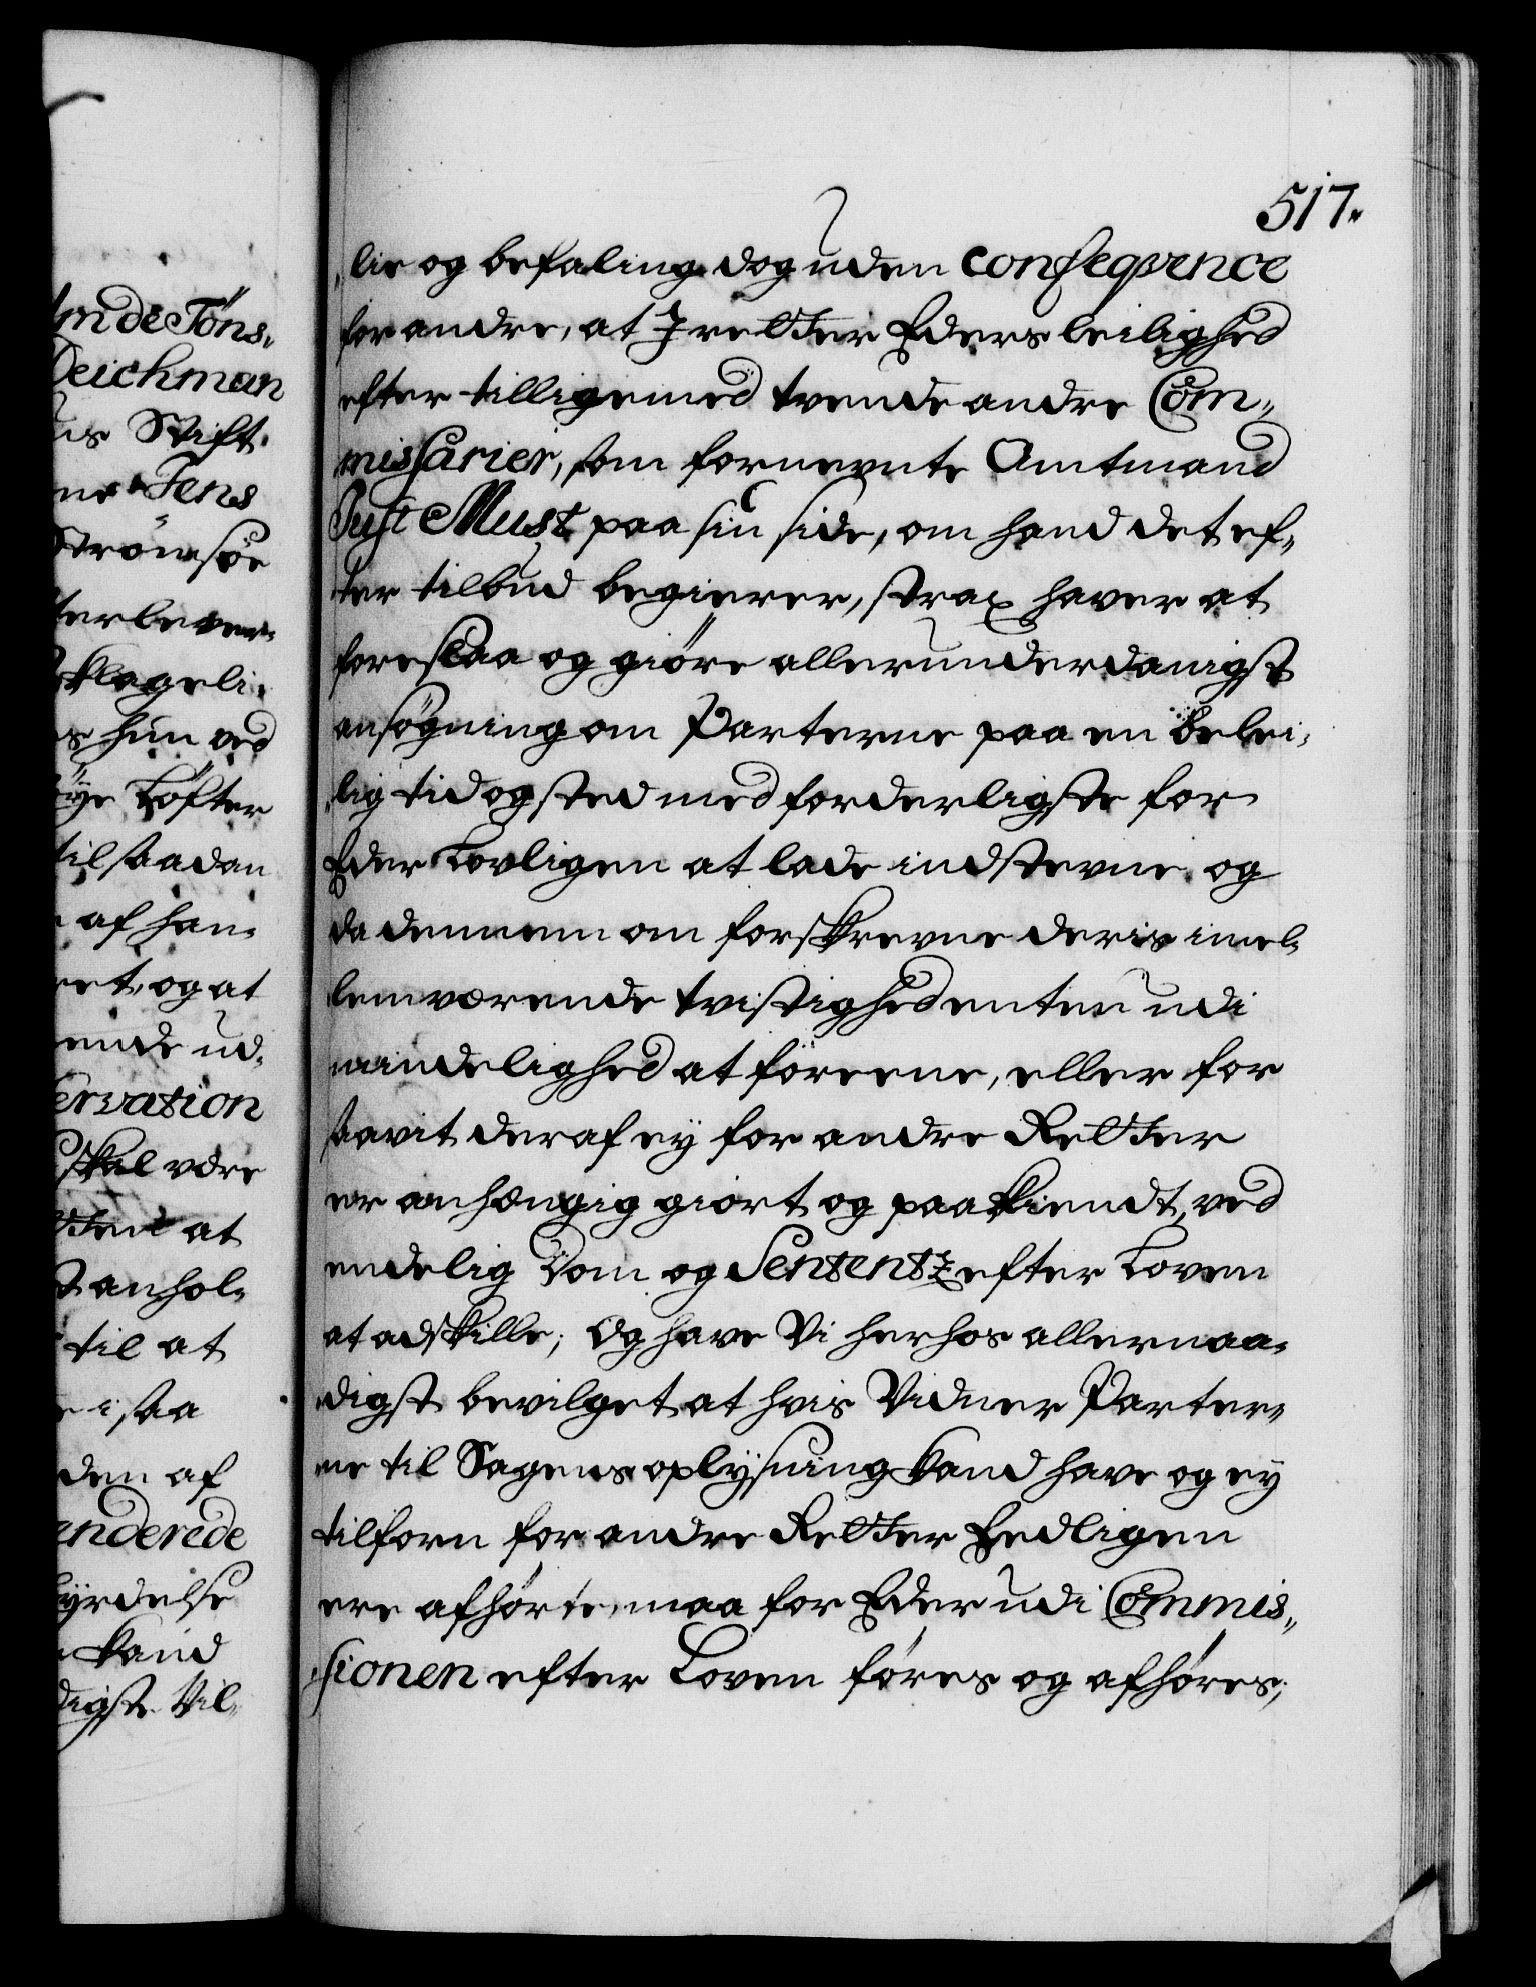 517.
lie og befaling dog uden conseqvence
for andre, at J retter Eders leilighed
efter tilligemed tvende andre Com-
missarier, som fornevnte Amtmand
Just Must paa sin side, om hand det ef-
ter tilbud begierer, strax haver at
foreslaa og giöre allerunderdanigst
ansögning om Parterne paa en belei-
lig tid og sted med forderligste for
Eder Lovligen at lade indstevne og
da dennem om forskrevne deris imel-
lemværende tvistighed enten udi
mindelighed at foreene, eller for
saavit deraf ey for andre Retter
er anhængig giort og paakiendt, ved
endelig Dom og Sententz efter Loven
at adskille; Og have Vi herhos allernaa-
digst bevilget at hvis Vidner Parter-
ne til Sagens oplysning kand have og ey
tilforn for andre Retter Eedligen
ere afhørte, maa for Eder udi Commis-
sionen efter Loven føres og afhøres;
Deichman
Stift
Jens
Strömsöe
klageli-
hun ved
Löfter
til saadan
af han-
og at
ud-
skal være
at
anhol-
til at
i saa
den af
kand
Vil-